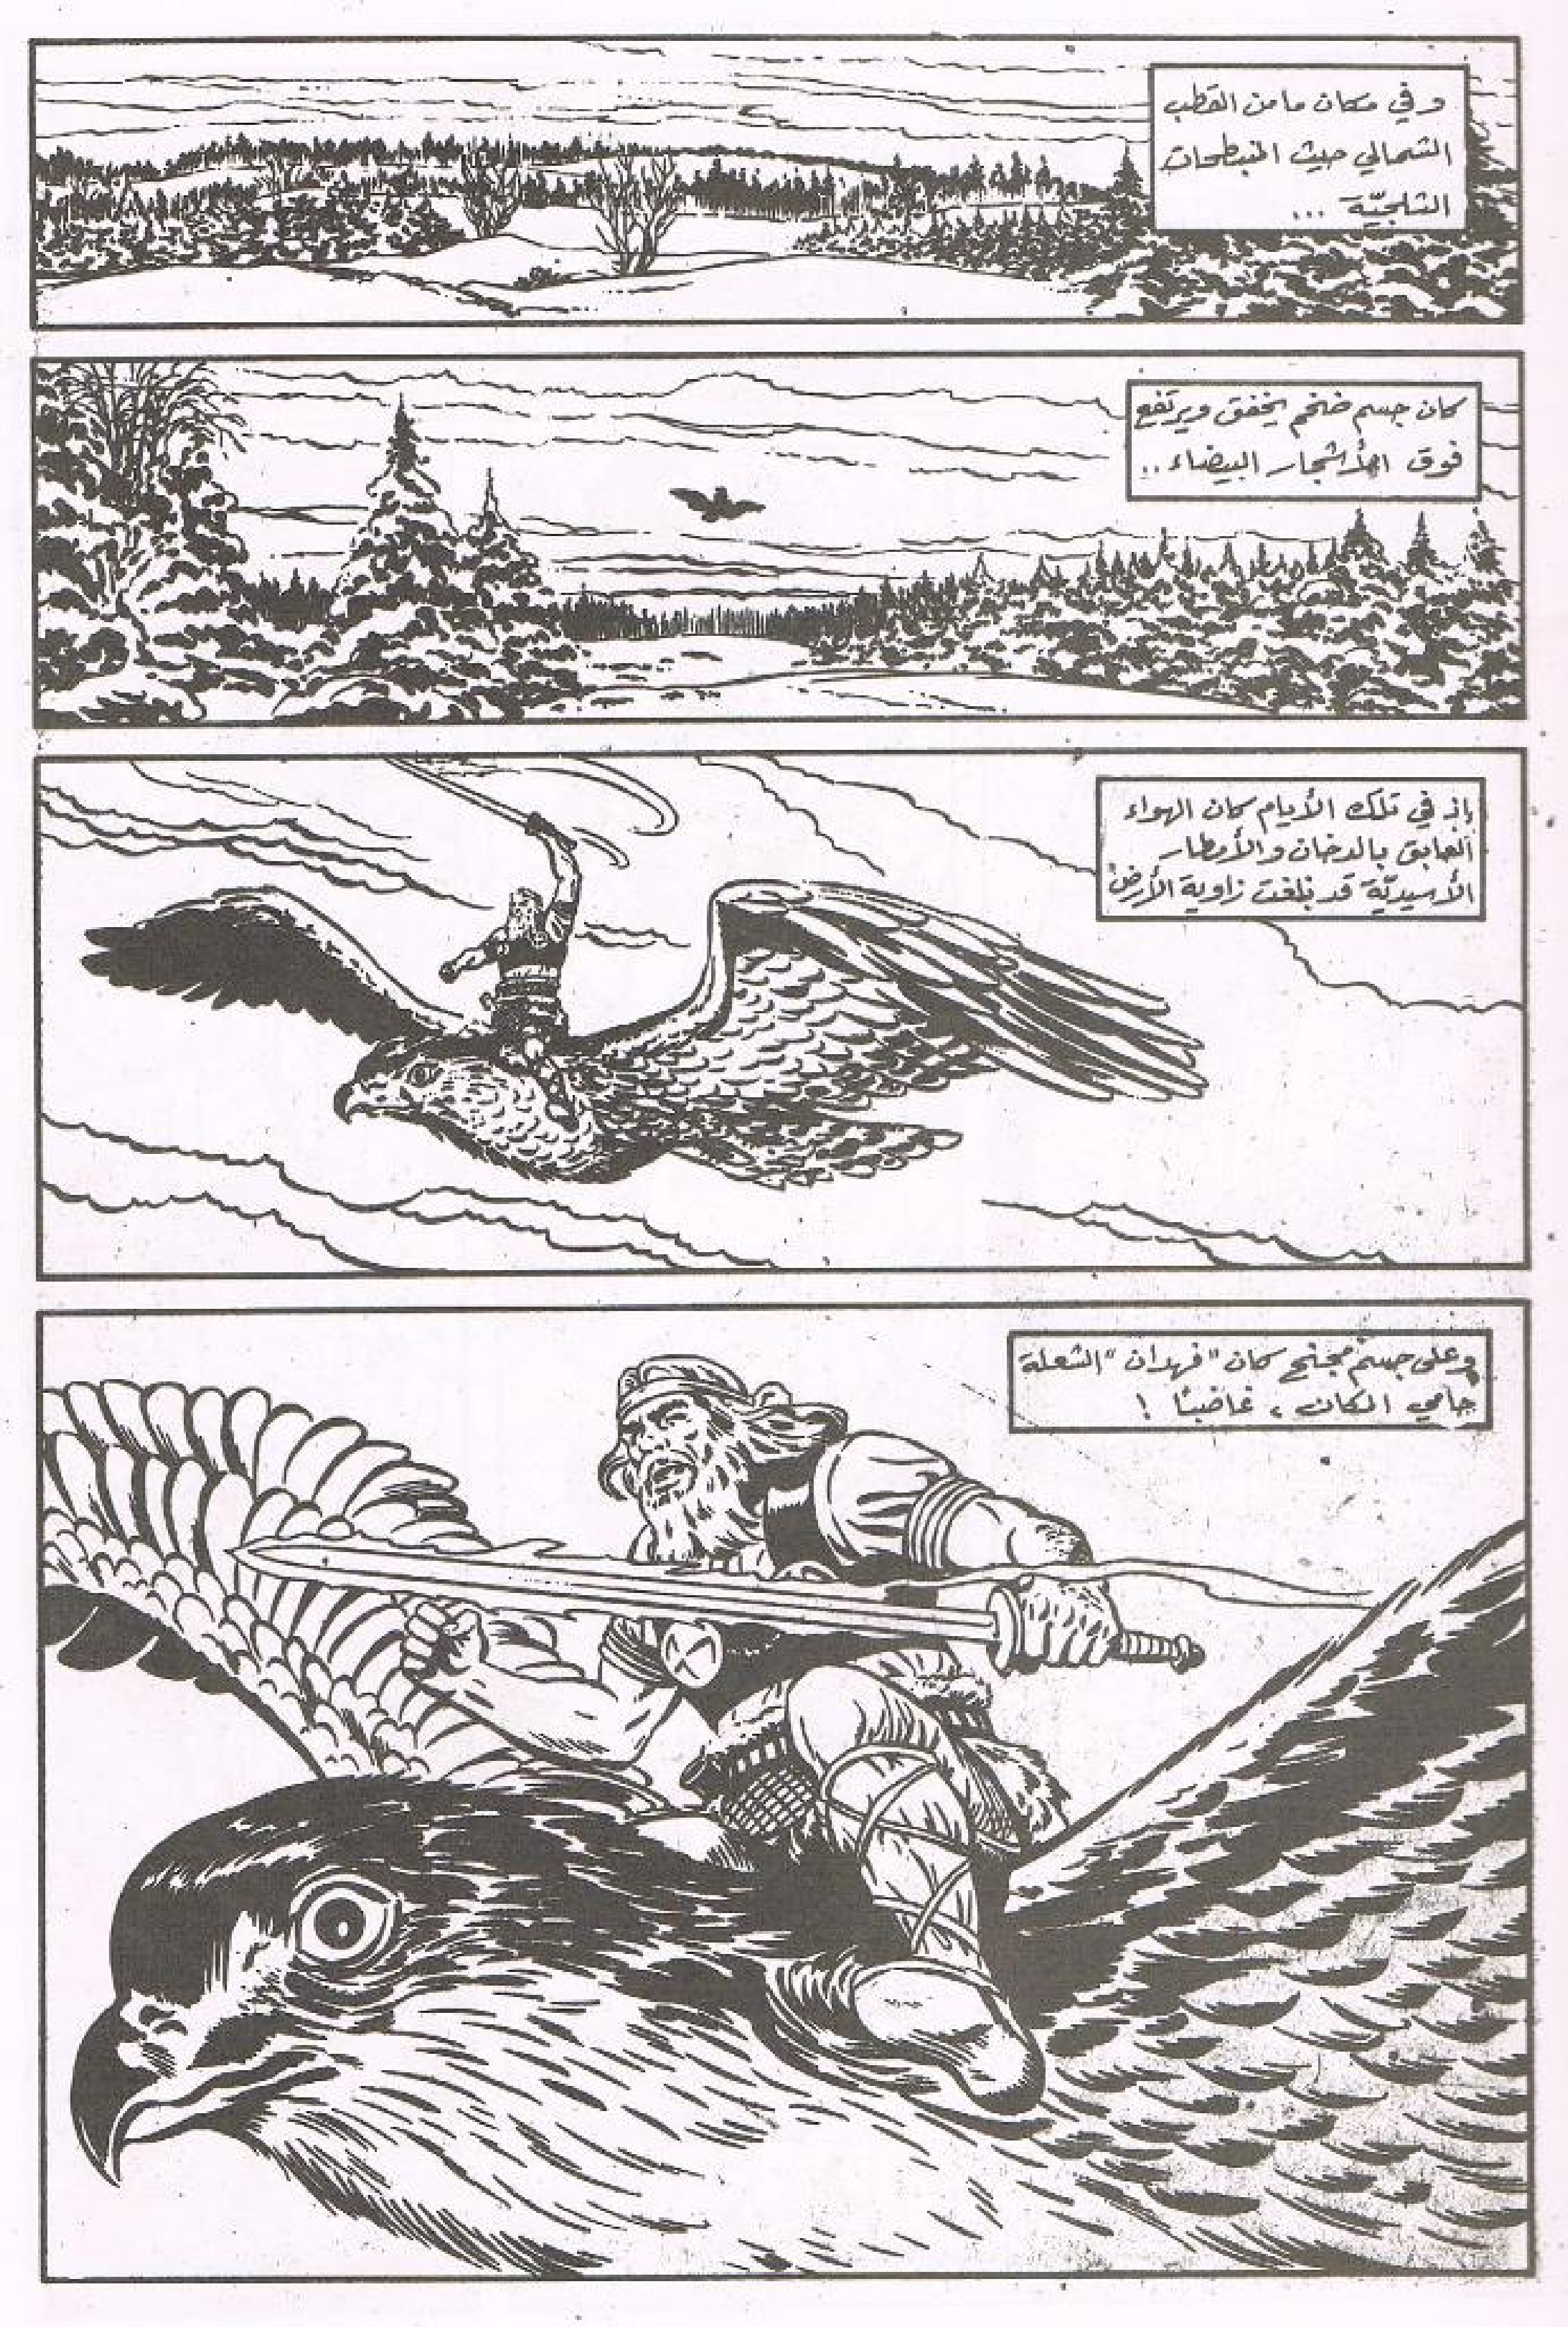 وفي مكان ما من القطب
الشمالي حيث المنبطحات
الثلجيّة ...
كان جسم ضخم يخفق ويرتفع
فوق الأشجار البيضاء ..
إذ في تلك الأيام كان الهواء
العابق بالدخان والأمطار
الأسيديّة قد بلغت زاوية الأرض
وعلى جسم مجنح كان "فهدان" الشعلة
حامي المكان ، غاضبًا !